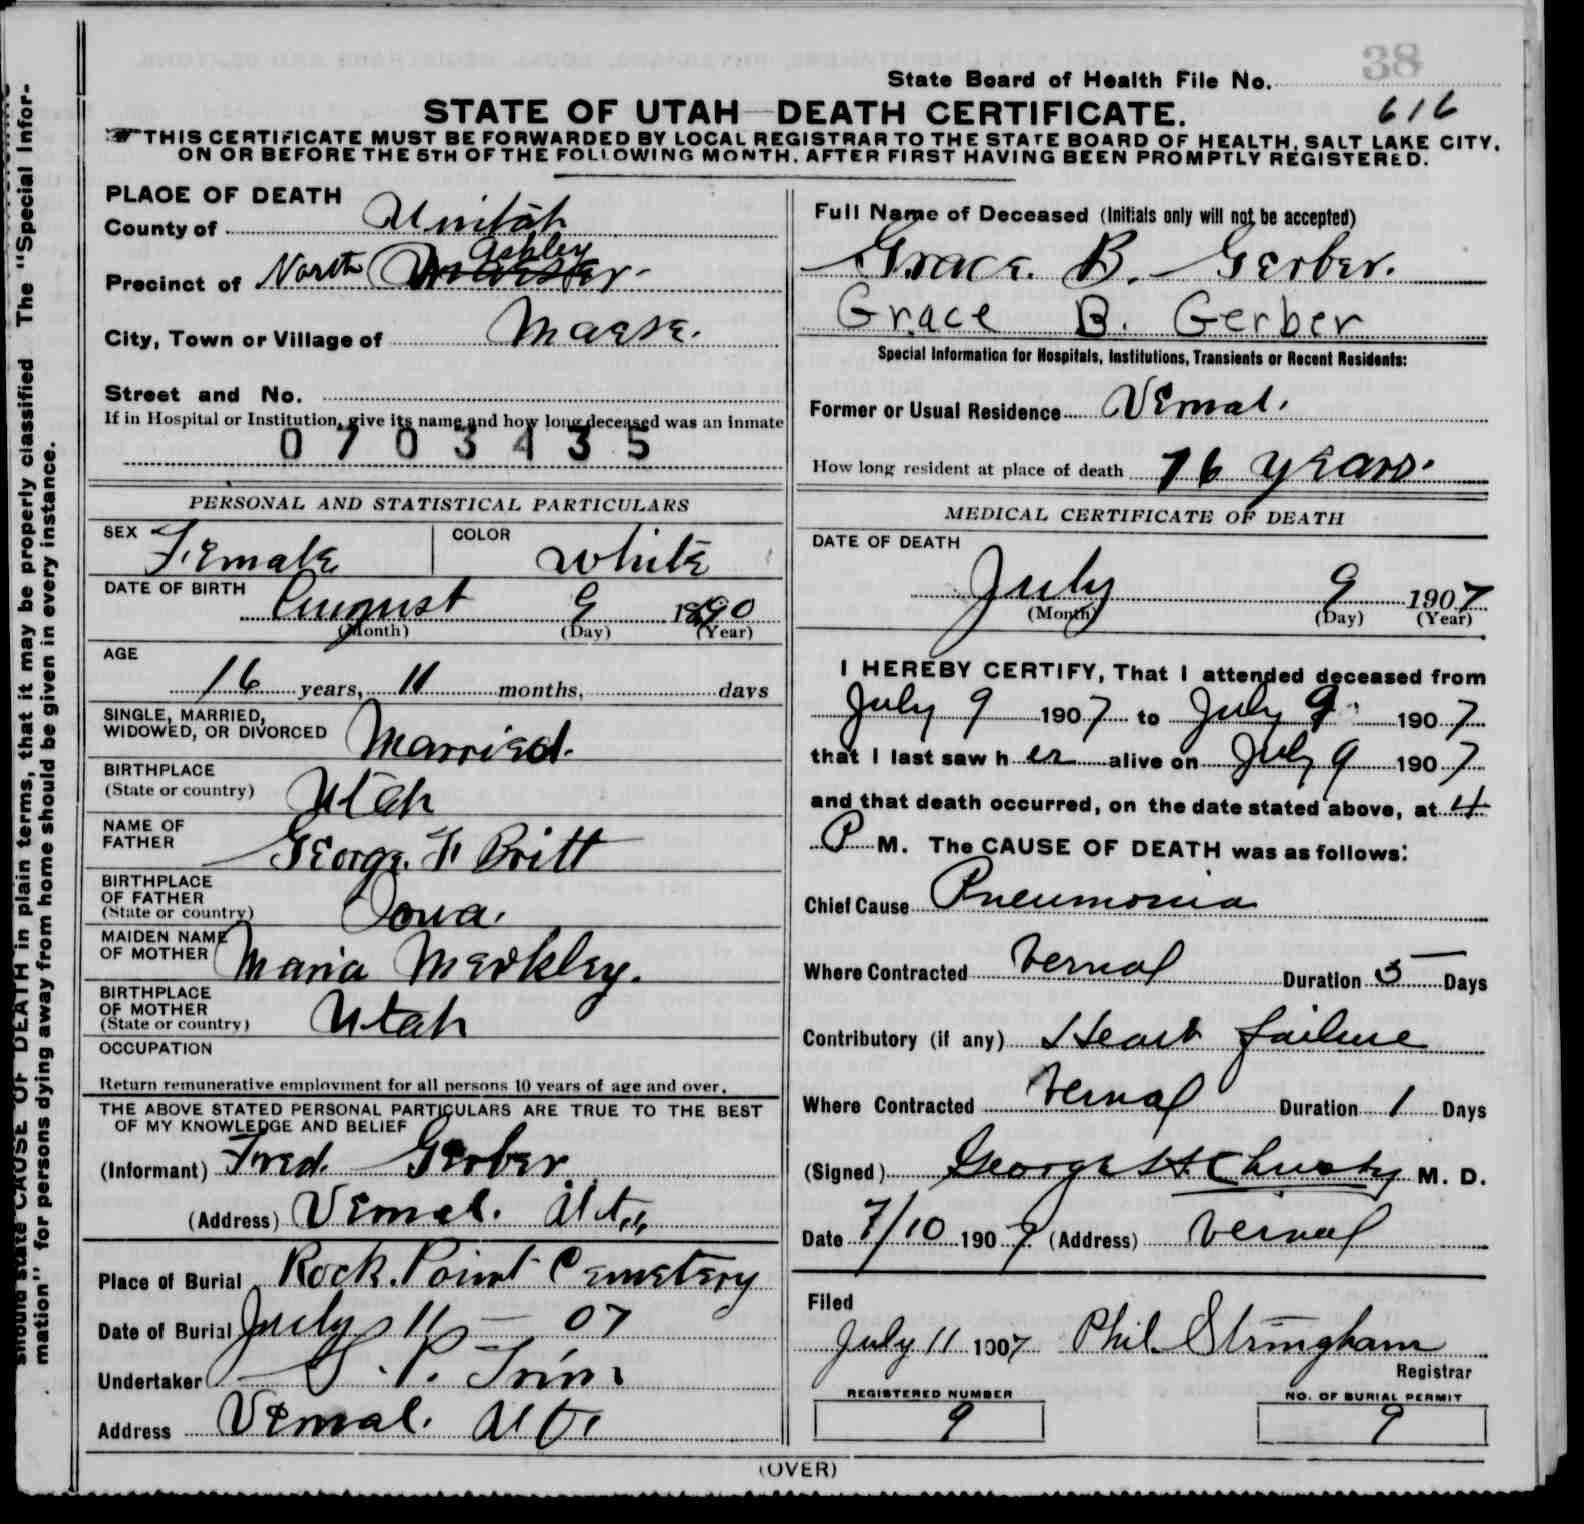 38
State Board of Health File No.
616
STATE OF UTAH—DEATH CERTIFICATE.
THIS CERTIFICATE MUST BE FORWARDED BY LOCAL REGISTRAR TO THE STATE BOARD OF HEALTH, SALT LAKE CITY,
ON OR BEFORE THE 5TH OF THE FOLLOWING MONTH, AFTER FIRST HAVING BEEN PROMPTLY REGISTERED.
PLACE OF DEATH
County of Unitah
Ashley
Precinct of North
City, Town or Village of Maese.
Street and No.
If in Hospital or Institution, give its name and how long deceased was an inmate
0703435
PERSONAL AND STATISTICAL PARTICULARS
SEX Female COLOR White
DATE OF BIRTH August 9 1890
(Month) (Day) (Year)
AGE
16 years, 11 months, days
SINGLE, MARRIED,
WIDOWED, OR DIVORCED Married.
BIRTHPLACE
(State or country) Utah
NAME OF
FATHER George F Britt
BIRTHPLACE
OF FATHER
(State or country) Iowa.
MAIDEN NAME
OF MOTHER Maria Merkley.
BIRTHPLACE
OF MOTHER
(State or country) Utah
OCCUPATION
Return remunerative employment for all persons 10 years of age and over.
THE ABOVE STATED PERSONAL PARTICULARS ARE TRUE TO THE BEST
OF MY KNOWLEDGE AND BELIEF
(Informant) Fred. Gerber
(Address) Vernal. Utah
Place of Burial Rock Point Cemetery
Date of Burial July 11 - 07
Undertaker
Address Vernal. Ut.
Full Name of Deceased (Initials only will not be accepted)
Grace. B. Gerber.
Grace B. Gerber
Special Information for Hospitals, Institutions, Transients or Recent Residents:
Former or Usual Residence Vernal.
How long resident at place of death 16 years.
MEDICAL CERTIFICATE OF DEATH
DATE OF DEATH
July 9 1907
(Month) (Day) (Year)
I HEREBY CERTIFY, That I attended deceased from
July 9 1907 to July 9 1907
that I last saw her alive on July 9 1907
and that death occurred, on the date stated above, at 4
P M. The CAUSE OF DEATH was as follows:
Chief Cause Pneumonia
Where Contracted Vernal Duration 5 Days
Contributory (if any) Heart failure
Where Contracted Vernal Duration 1 Days
(Signed) George H Christy M. D.
Date 7/10 1907 (Address) Vernal
Filed
July 11 1907 Phil. Stringham
Registrar
REGISTERED NUMBER
9
NO. OF BURIAL PERMIT
9
(OVER)
should state CAUSE OF DEATH in plain terms, that it may be properly classified The "Special Infor-
mation" for persons dying away from home should be given in every instance.